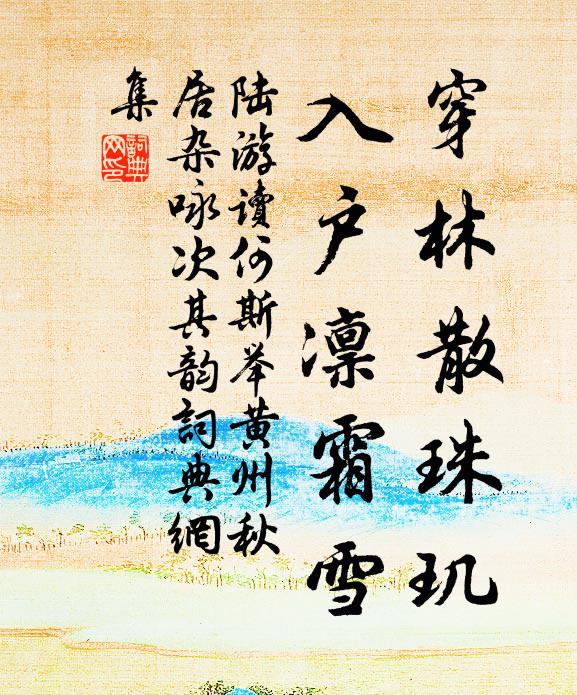 穿林散珠玑
入户凛霜雪
陆游读何斯举黄州秋
居杂咏次其韵詞典網
集
詞典
网印